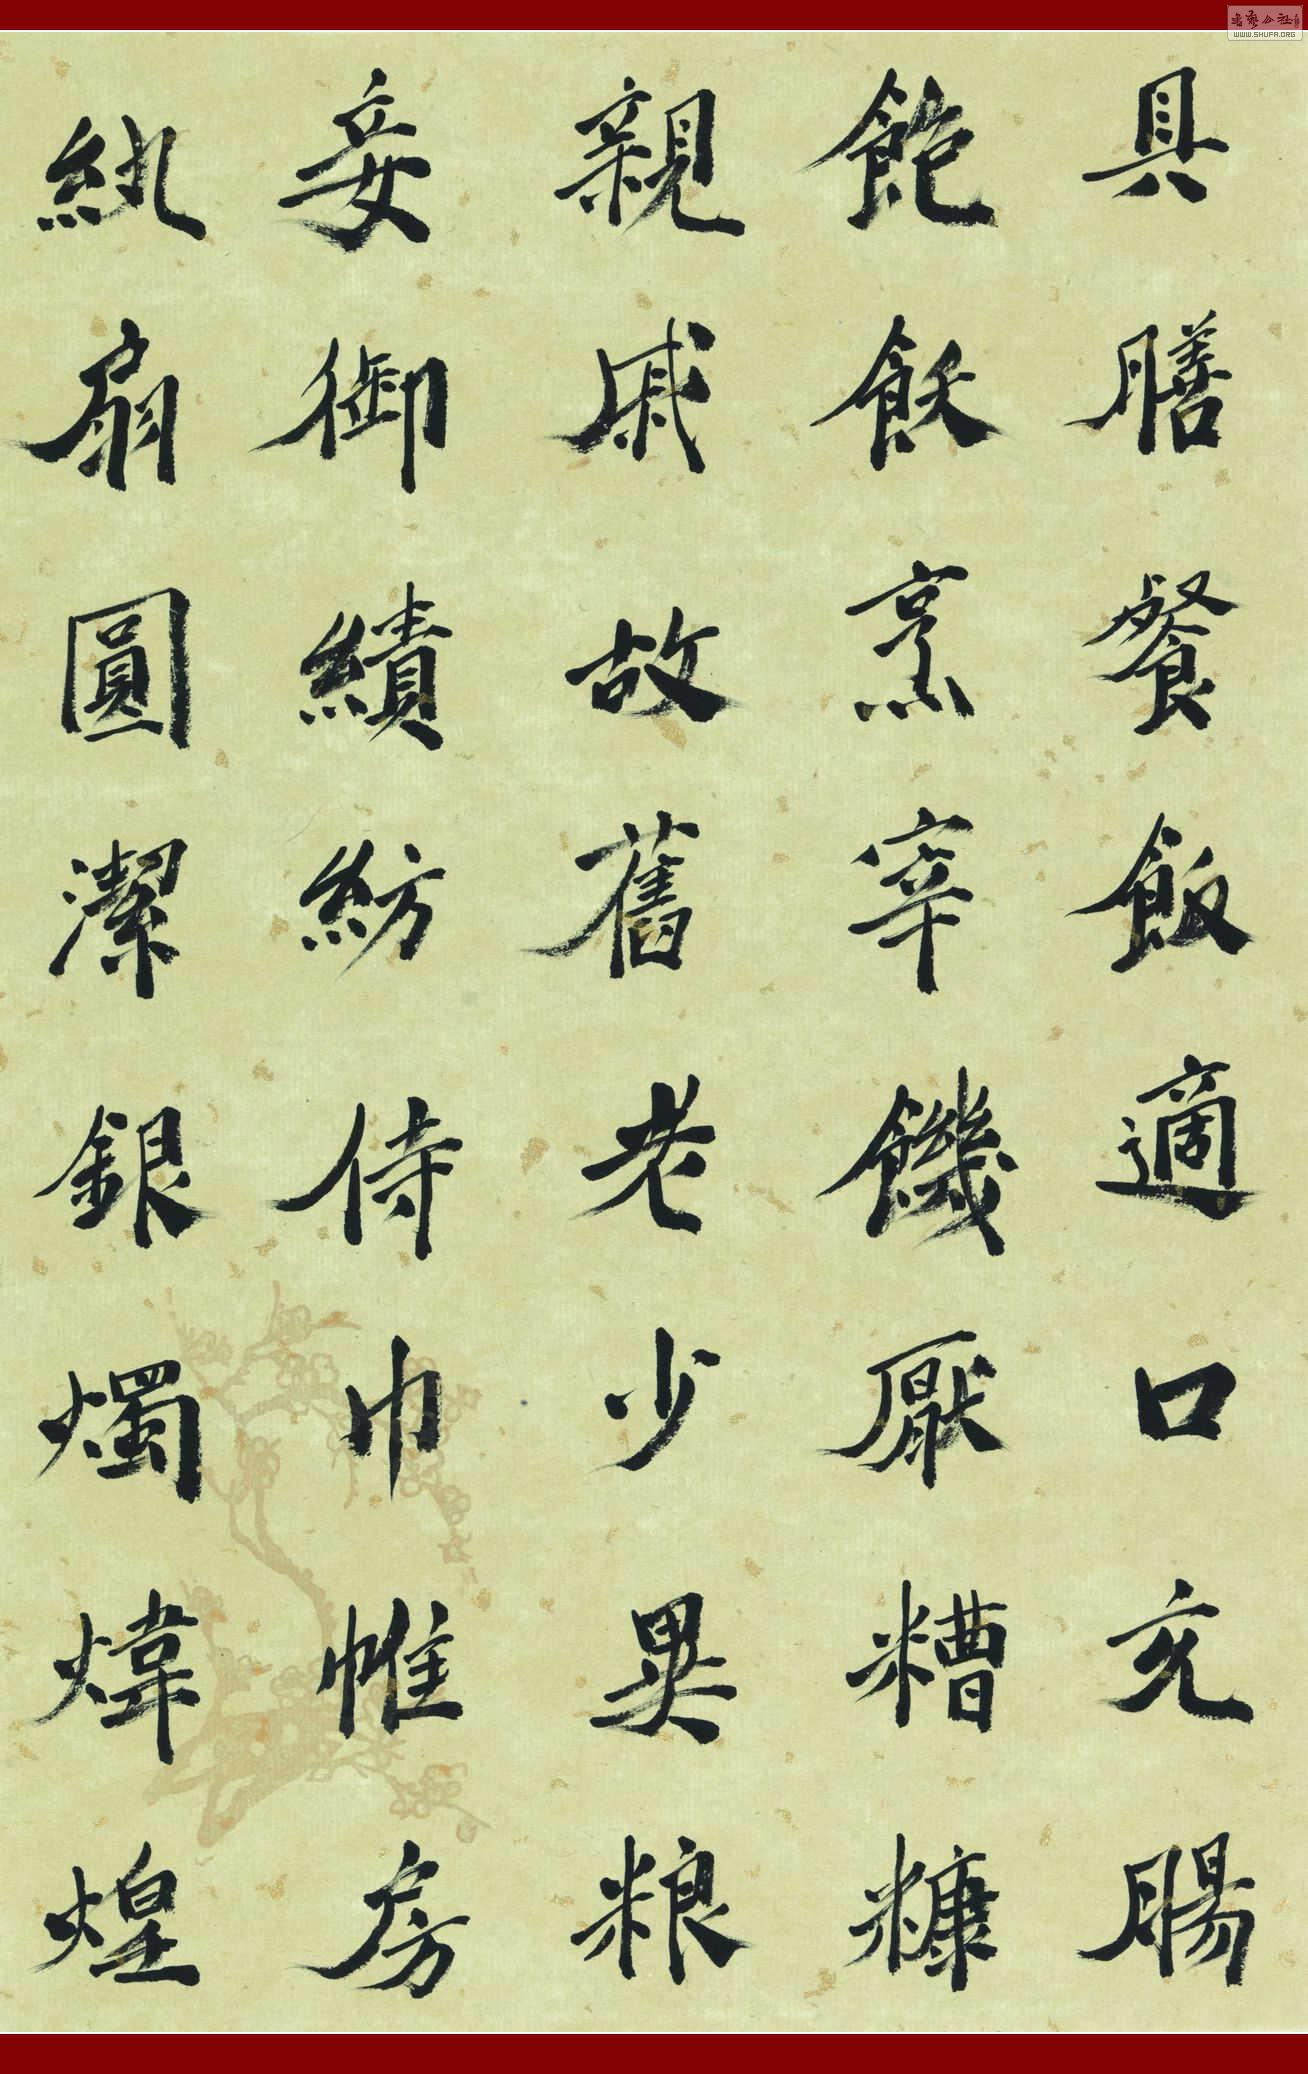 具膳餐飯適口充腸
飽飫烹宰饑厭糟糠
親戚故舊老少異粮
妾御績紡侍巾帷房
紈扇圓潔銀燭煒煌
WWW.SHUFA.ORG